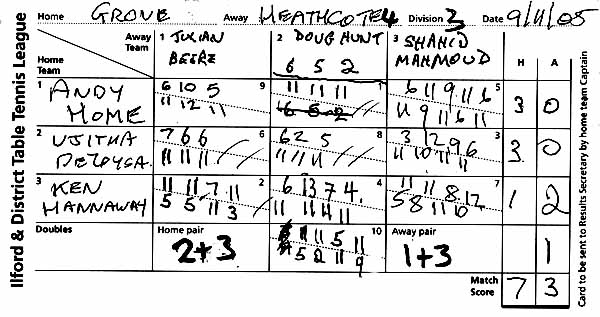 Ilford & District Table Tennis League
Home GROVE Away HEATHCOTE 4 Division 3 Date 9/11/05
Away Team 1 JULIAN BEERE 2 DOUG HUNT 3 SHAHID MAHMOUD H A
Home Team 6 5 2
1 ANDY HOME 6 10 5 9 11 11 11 1 6 11 9 11 6 5 3 0
11 12 11 6 5 2 11 9 11 6 11
2 7 6 6 6 6 2 5 8 3 12 9 6 3 3 0
11 11 11 11 11 11 11 10 11 11
3 KEN HANNAWAY 11 11 7 11 2 6 13 7 4 4 11 11 8 12 7 1 2
5 5 11 3 11 11 4 11 5 8 11 10
Doubles Home pair 2+3 10 11 11 5 11 Away pair 1+3 1
5 2 11 9
Match Score 7 3
Card to be sent to Results Secretary by home team Captain